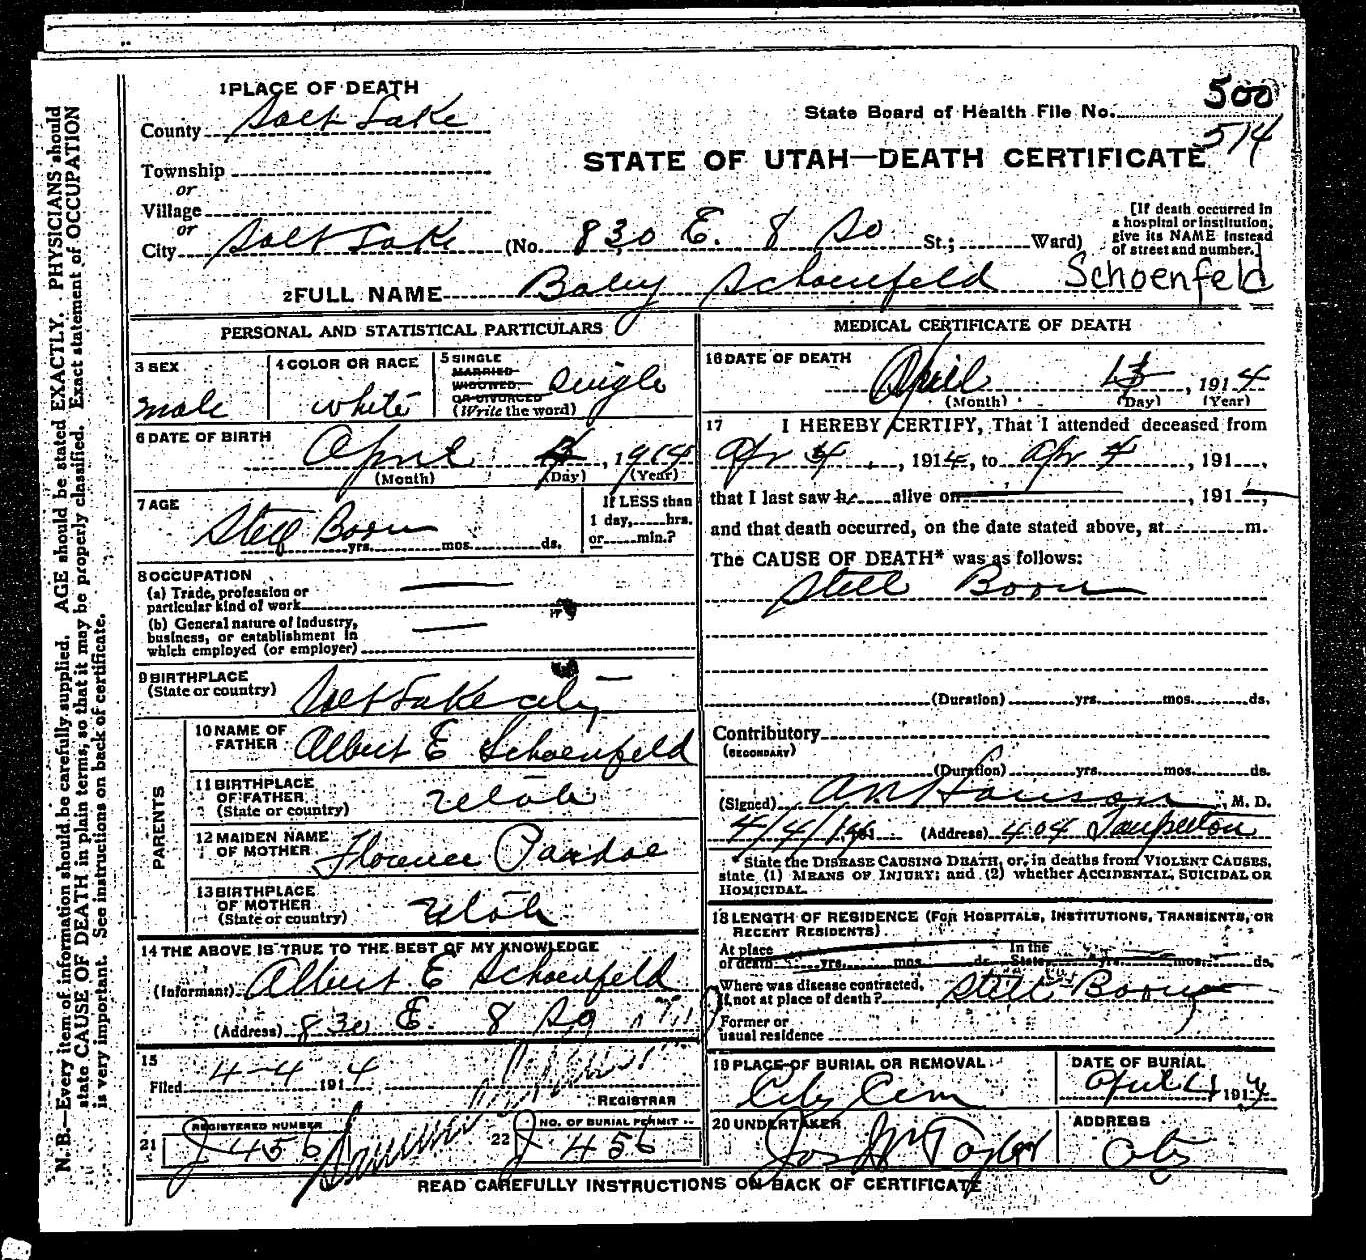 N. B.—Every item of information should be carefully supplied. AGE should be stated EXACTLY. PHYSICIANS should
state CAUSE OF DEATH in plain terms, so that it may be properly classified. Exact statement of OCCUPATION
is very important. See instructions on back of certificate.
1 PLACE OF DEATH
County Salt Lake
State Board of Health File No. 500
514
Township
or
Village
or
STATE OF UTAH—DEATH CERTIFICATE
City Salt Lake (No. 830 E. 8 So St.; Ward)
[If death occurred in
a hospital or institution,
give its NAME instead
of street and number.]
2 FULL NAME Baby Schoenfeld Schoenfeld
PERSONAL AND STATISTICAL PARTICULARS
3 SEX
male
4 COLOR OR RACE
white
5 SINGLE
MARRIED
WIDOWED
OR DIVORCED
(Write the word)
single
6 DATE OF BIRTH
April 4, 1914
(Month) (Day) (Year)
7 AGE
Stell Born
yrs. mos. ds.
If LESS than
1 day, hrs.
or min.?
8 OCCUPATION
(a) Trade, profession or
particular kind of work
(b) General nature of industry,
business, or establishment in
which employed (or employer)
9 BIRTHPLACE
(State or country)
Salt Lake city
PARENTS
10 NAME OF
FATHER
Albert E Schoenfeld
11 BIRTHPLACE
OF FATHER
(State or country)
Utah
12 MAIDEN NAME
OF MOTHER
Florence Pardoe
13 BIRTHPLACE
OF MOTHER
(State or country)
Utah
14 THE ABOVE IS TRUE TO THE BEST OF MY KNOWLEDGE
(Informant) Albert E Schoenfeld
(Address) 830 E. 8 So
15
Filed 4-4 1914
REGISTRAR
21 REGISTERED NUMBER
J 456
22 NO. OF BURIAL PERMIT
J 456
MEDICAL CERTIFICATE OF DEATH
16 DATE OF DEATH
April , 1914
(Month) (Day) (Year)
17 I HEREBY CERTIFY, That I attended deceased from
Apr 4, 1914, to Apr 4, 191
that I last saw h alive on , 191
and that death occurred, on the date stated above, at m.
The CAUSE OF DEATH* was as follows:
Stell Born
(Duration) yrs. mos. ds.
Contributory
(SECONDARY)
(Duration) yrs. mos. ds.
(Signed) , M. D.
4/4/14 191 (Address) 404
State the DISEASE CAUSING DEATH, or, in deaths from VIOLENT CAUSES,
state (1) MEANS OF INJURY; and (2) whether ACCIDENTAL, SUICIDAL OR
HOMICIDAL.
18 LENGTH OF RESIDENCE (FOR HOSPITALS, INSTITUTIONS, TRANSIENTS, OR
RECENT RESIDENTS)
At place
of death yrs. mos. ds.
In the
State yrs. mos. ds.
Where was disease contracted,
if not at place of death? Stell Born
Former or
usual residence
19 PLACE OF BURIAL OR REMOVAL
City Cem
DATE OF BURIAL
April 4 1914
20 UNDERTAKER
Jos Wm Taylor
ADDRESS
City
READ CAREFULLY INSTRUCTIONS ON BACK OF CERTIFICATE